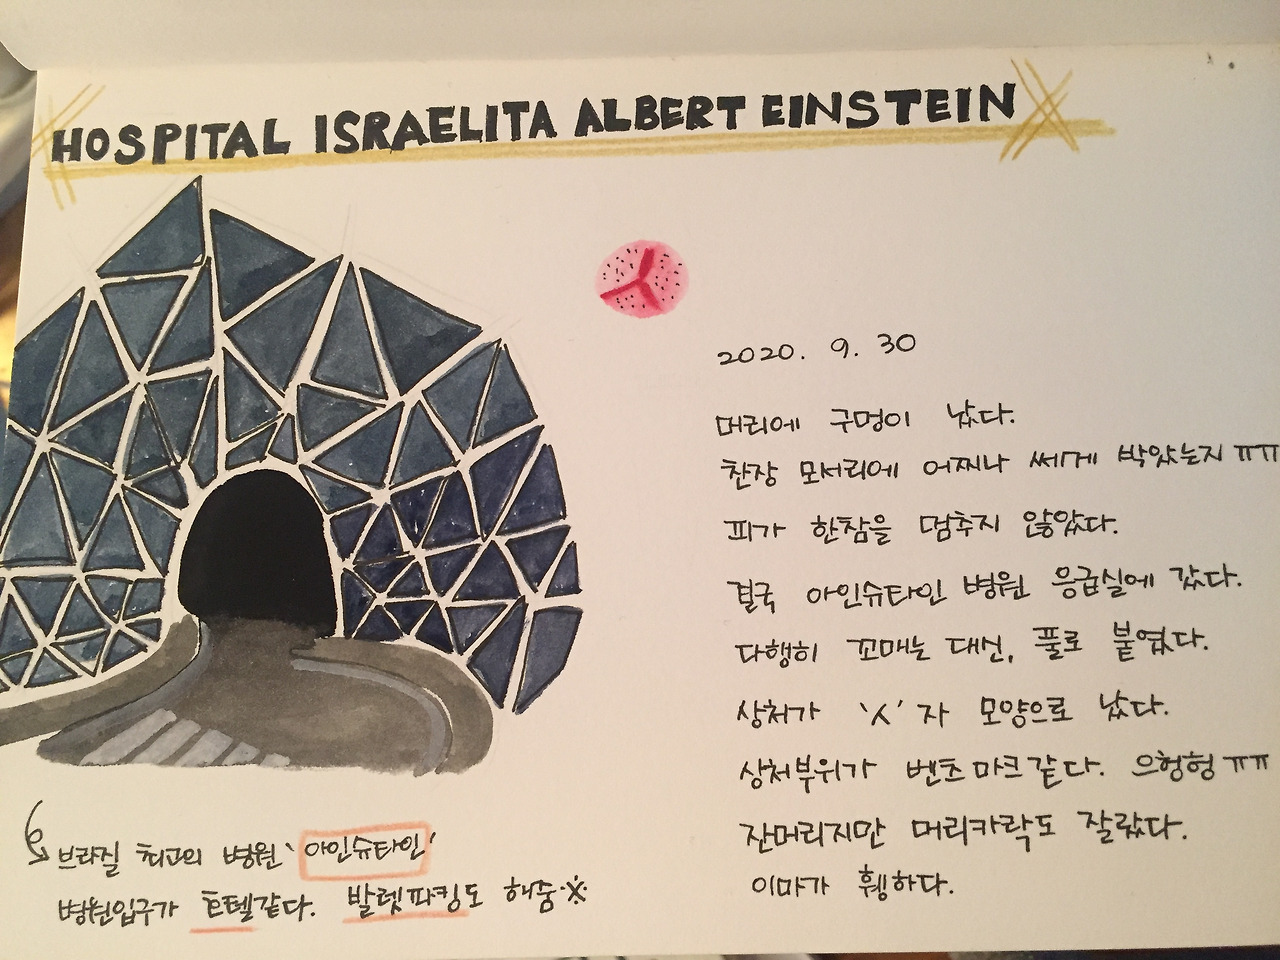 HOSPITAL ISRAELITA ALBERT EINSTEIN
2020. 9. 30
머리에 구멍이 났다.
찬장 모서리에 어찌나 쎄게 박았는지 ㅠㅠ
피가 한참을 멈추지 않았다.
결국 아인슈타인 병원 응급실에 갔다.
다행히 꼬매는 대신, 풀로 붙였다.
상처가 'ㅅ'자 모양으로 났다.
상처부위가 벤츠마크같다. 으헝헝 ㅠㅠ
잔머리지만 머리카락도 잘랐다.
이마가 휑하다.
브라질 최고의 병원 '아인슈타인'
병원입구가 호텔같다. 발렛파킹도 해줌